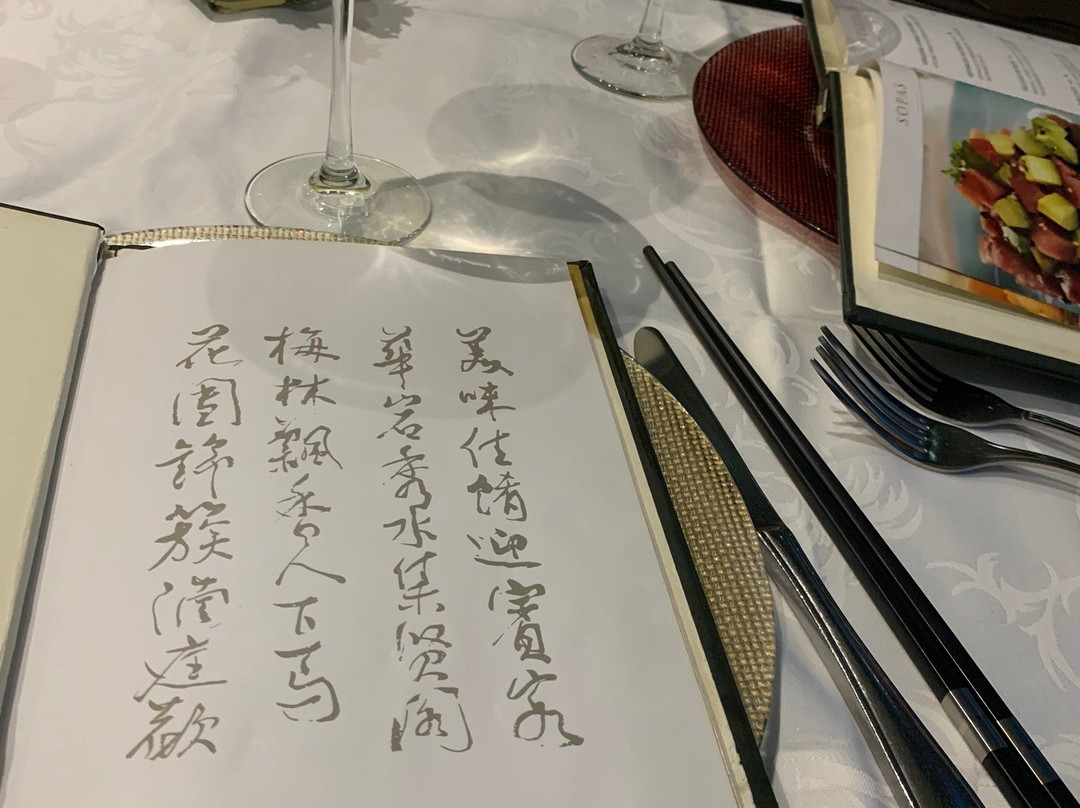 美味佳餚迎賓客
華岩秀水集賢閣
梅林飄香人下馬
花園錦簇滿庭歡
SOPAS